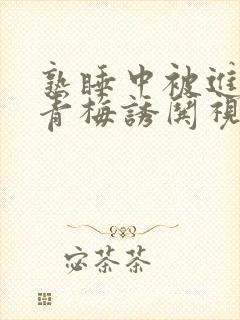 熟睡中被進
青梅誘関視
宓茶茶